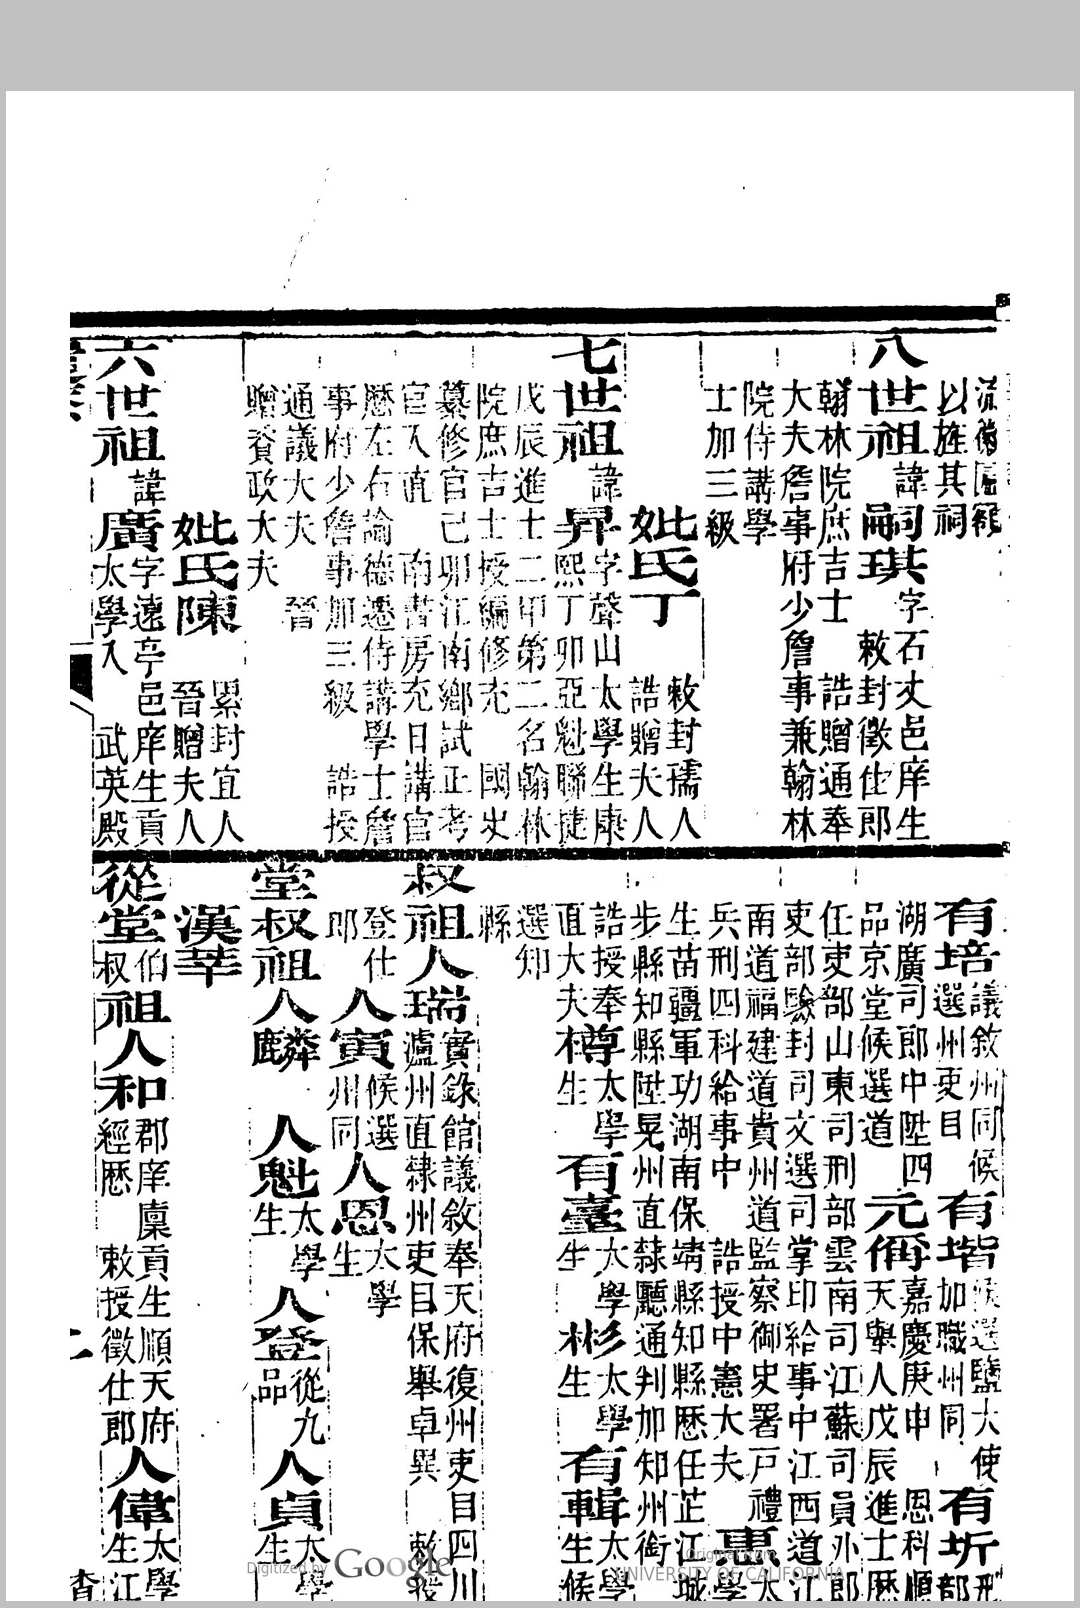 以旌其祠
八世祖諱嗣琪字石丈邑庠生
敕封徵仕郎
翰林院庶吉士 誥贈通奉
大夫詹事府少詹事兼翰林
院侍講學
士加三級
妣氏丁
敕封孺人
誥贈夫人
七世祖諱昇字聲山太學生康
熙丁卯亞魁聯捷
戊辰進士二甲第二名翰林
院庶吉士授編修充 國史
纂修官己卯江南鄉試正考
官入直 南書房充日講官
歷左右諭德遷侍講學士詹
事府少詹事加三級 誥授
通議大夫 晉
贈資政大夫
妣氏陳
累封宜人
晉贈夫人
六世祖諱廣字遠亭邑庠生貢
太學入 武英殿
有培議敘州同候
選州吏目
有堦候選鹽大使
加職州同
有圻刑
部
湖廣司郎中陞四
品京堂候選道
元偁嘉慶庚申 恩科順
天舉人戊辰進士歷
任吏部山東司刑部雲南司江蘇司員外郎
吏部驗封司文選司掌印給事中江西道江
南道福建道貴州道監察御史署戶禮
兵刑四科給事中 誥授中憲大夫
惠太
學
生苗疆軍功湖南保靖縣知縣歷任芷江城
步縣知縣陞晃州直隸廳通判加知州銜
誥授奉
直大夫
樽太學
生
有臺太學
生
彬太學
生
有輯太學
生候
選知
縣
叔祖人瑞實錄館議敘奉天府復州吏目四川
瀘州直隸州吏目保舉卓異 敕授
登仕
郎
人寅候選
州同
人恩太學
生
堂叔祖人麟 人魁太學
生
人登從九
品
人貞太學
生
漢莘
從堂伯
叔
祖人和郡庠廩貢生順天府
經歷 敕授徵仕郎
人偉太學
生江
Digitized by Google
Original from
UNIVERSITY OF CALIFORNIA